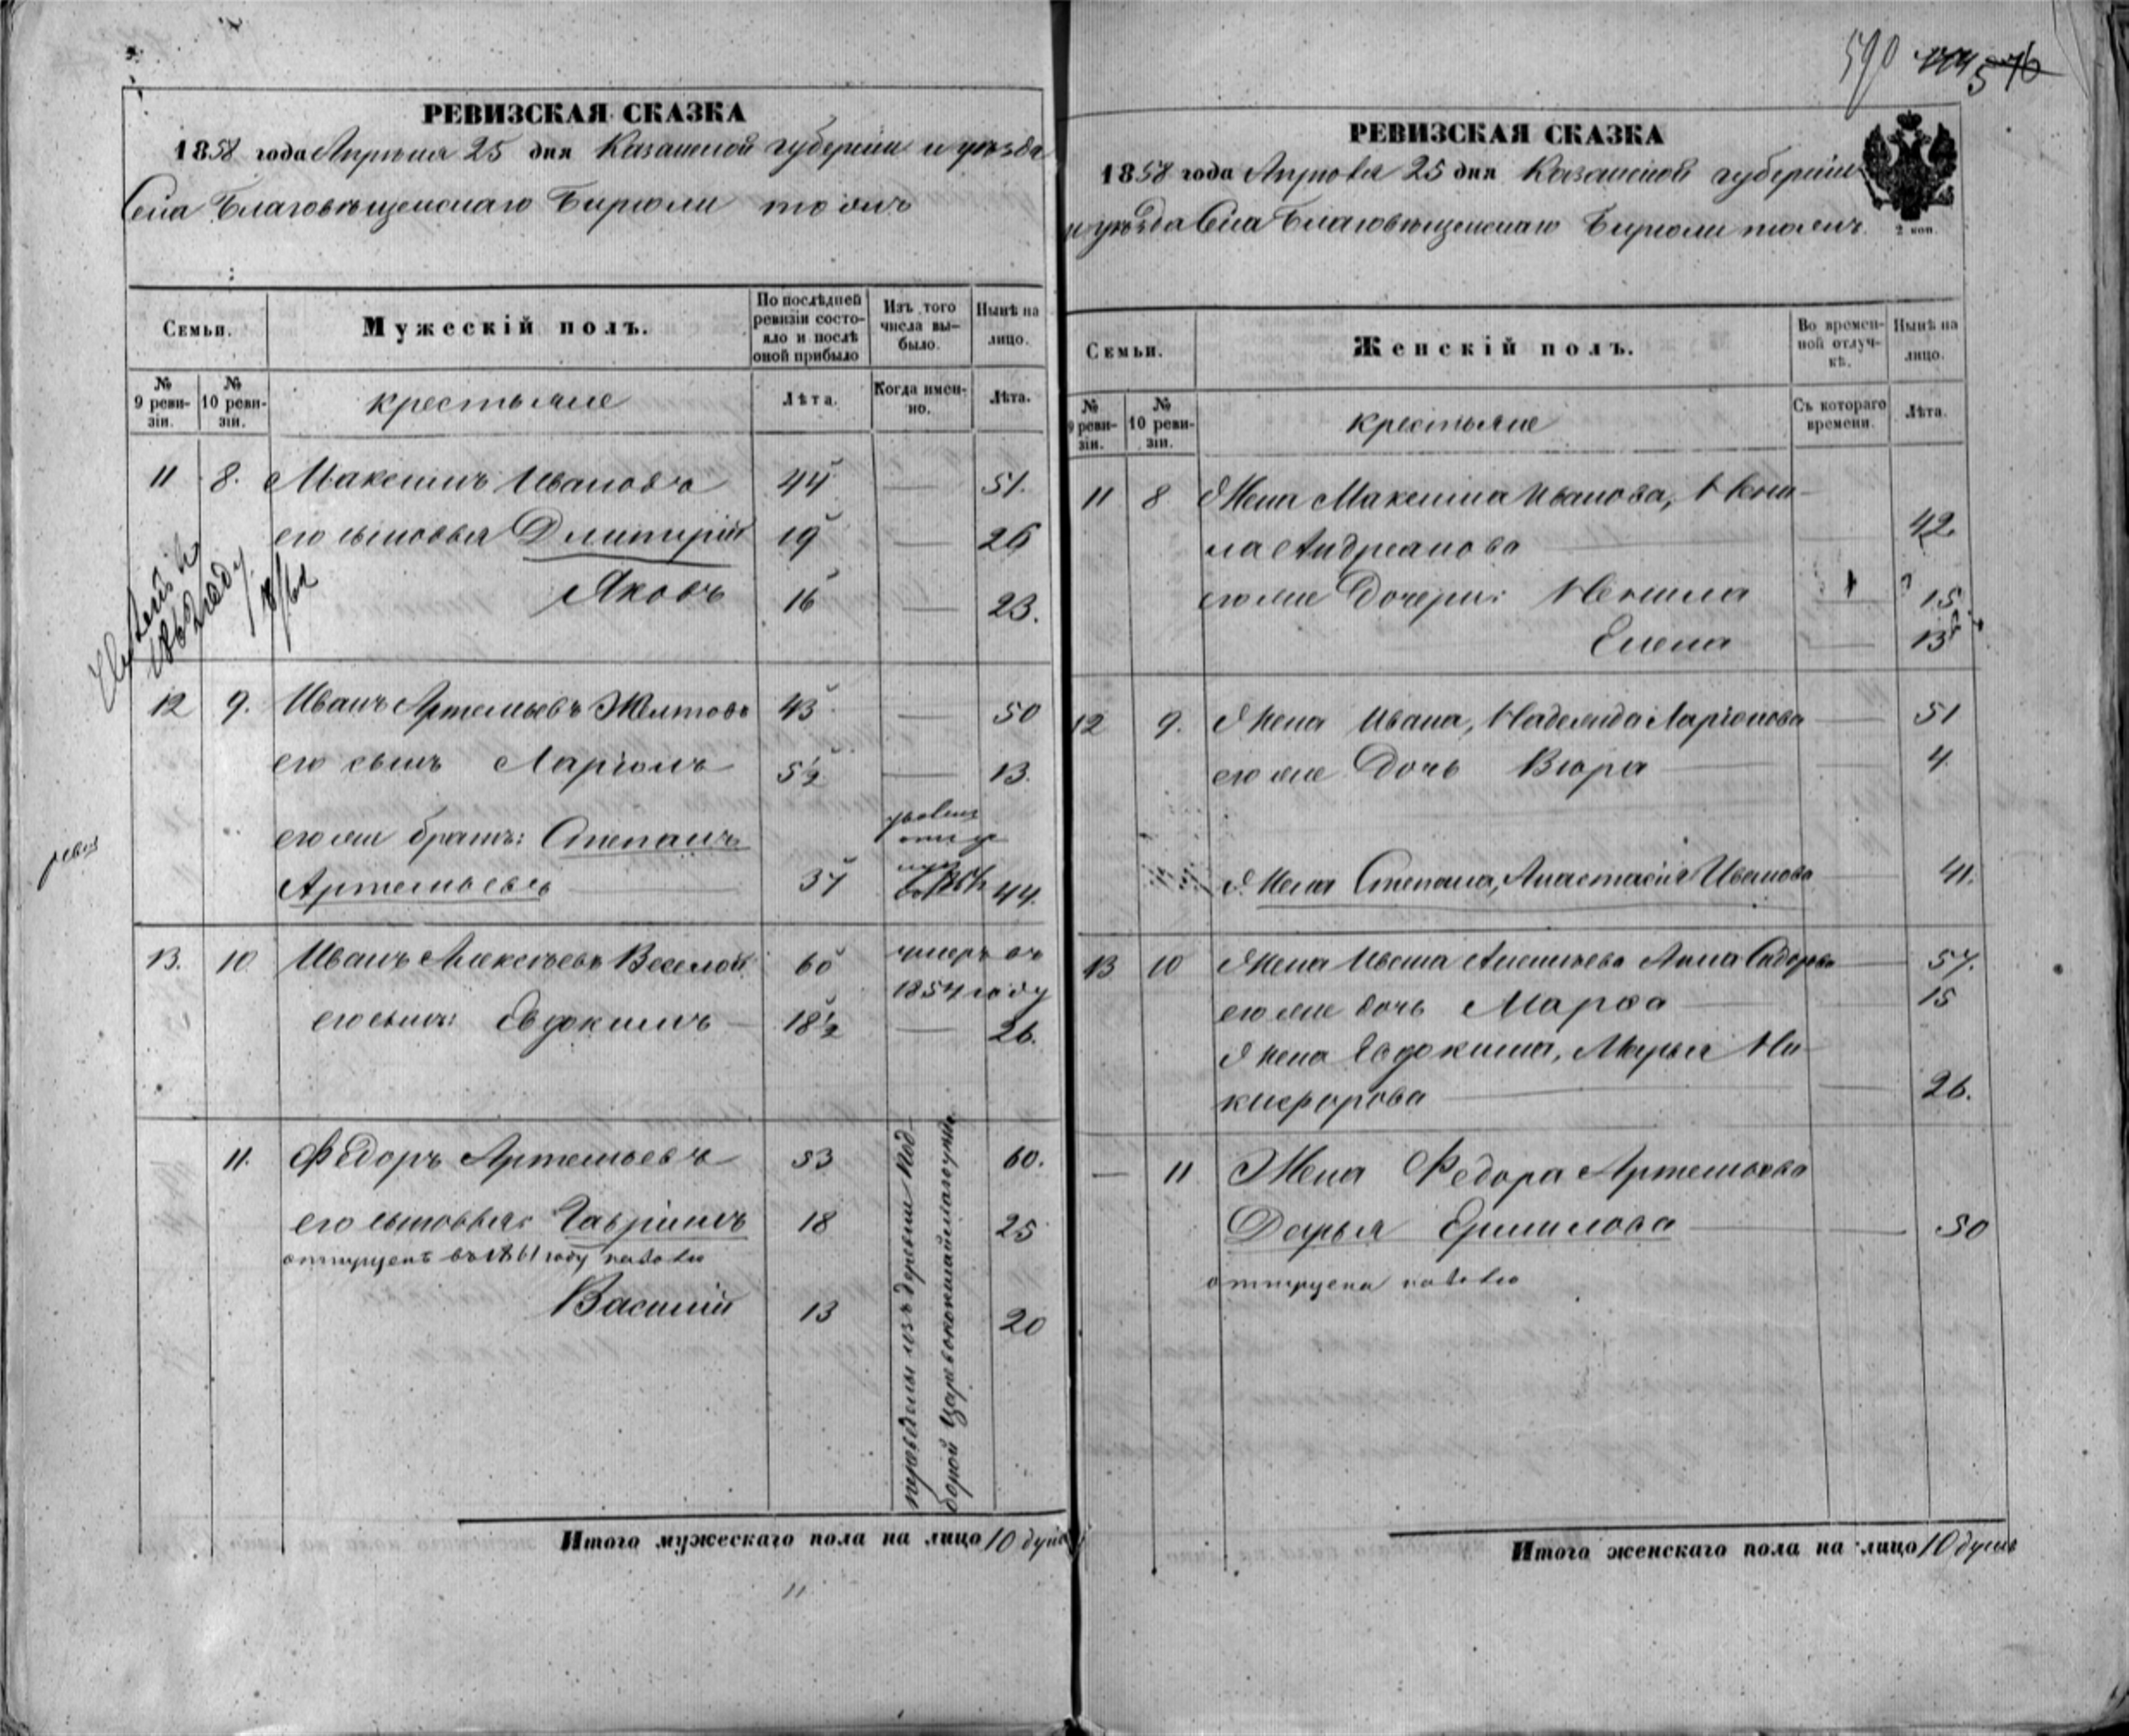 РЕВИЗСКАЯ СКАЗКА
1858 года Апрѣля 25 дня Казанской губерніи и уѣзда
Села Благовѣщенскаго Бирюли тожъ
Семьи.
Мужескій полъ.
По послѣдней ревизіи состояло и послѣ оной прибыло
Изъ того числа выбыло.
Нынѣ на лицо.
№ 9 ревизіи.
№ 10 ревизіи.
крестьяне
Лѣта.
Когда именно.
Лѣта.
11 8. Максимъ Ивановъ 44 — 51.
его сыновья Дмитрій 19 — 26
Яковъ 16 — 23.
12 9. Иванъ Артемьевъ Желтовъ 43 — 50
его сынъ Ларіонъ 5½ — 13.
его же братъ: Степанъ
Артемьевъ 37 44.
13. 10 Иванъ Алексѣевъ Веселой 60 умеръ въ
1854 году
его сынъ: Евдокимъ — 18½ — 26.
11. Федоръ Артемьевъ 53 60.
его сыновья: Гавріилъ 18 25
отпущенъ въ 1861 году
Василій 13 20
изъ деревни Подборой Царевококшайскаго уѣзда
Итого мужескаго пола на лицо 10 душъ
11
590 576
РЕВИЗСКАЯ СКАЗКА
1858 года Апрѣля 25 дня Казанской губерніи
и уѣзда Села Благовѣщенскаго Бирюли тожъ.
2 коп.
Семьи.
Женскій полъ.
Во временной отлучкѣ.
Нынѣ на лицо.
№ 9 ревизіи.
№ 10 ревизіи.
крестьяне
Съ котораго времени.
Лѣта.
11 8 Жена Максима Иванова, Нени-
ла Андреанова 42.
его же Дочери: Ненила — 15
Елена — 13
12 9. Жена Ивана, Надежда Ларіонова — 51
его же Дочь Вѣра — 4.
Жена Степана, Анастасія Иванова — 41.
13 10 Жена Ивана Анна Сидорова — 57.
его же дочь Марфа 15
Жена Евдокима, Марья Ни-
кифорова — 26.
— 11 Жена Федора Артемьева
Дарья Ермилова — 50
отпущена
Итого женскаго пола на лицо 10 душъ